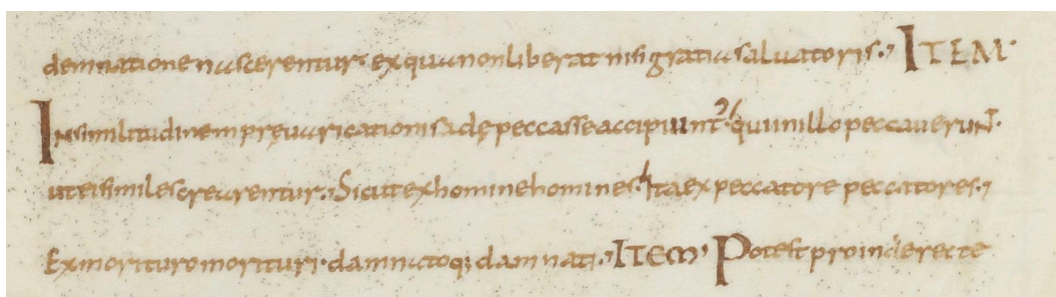 demnatione nascerentur. ex qua non liberat nisi gratia salvatoris. ITEM
IN similitudinem pręvaricationis adę peccasse accipiunt. qui in illo peccaverunt.
ut ei similes crearentur. Sicut ex homine homines. Ita ex peccatore peccatores.
Ex morituro morituri. damnatoq; damnati. ITEM Potest proinde recte